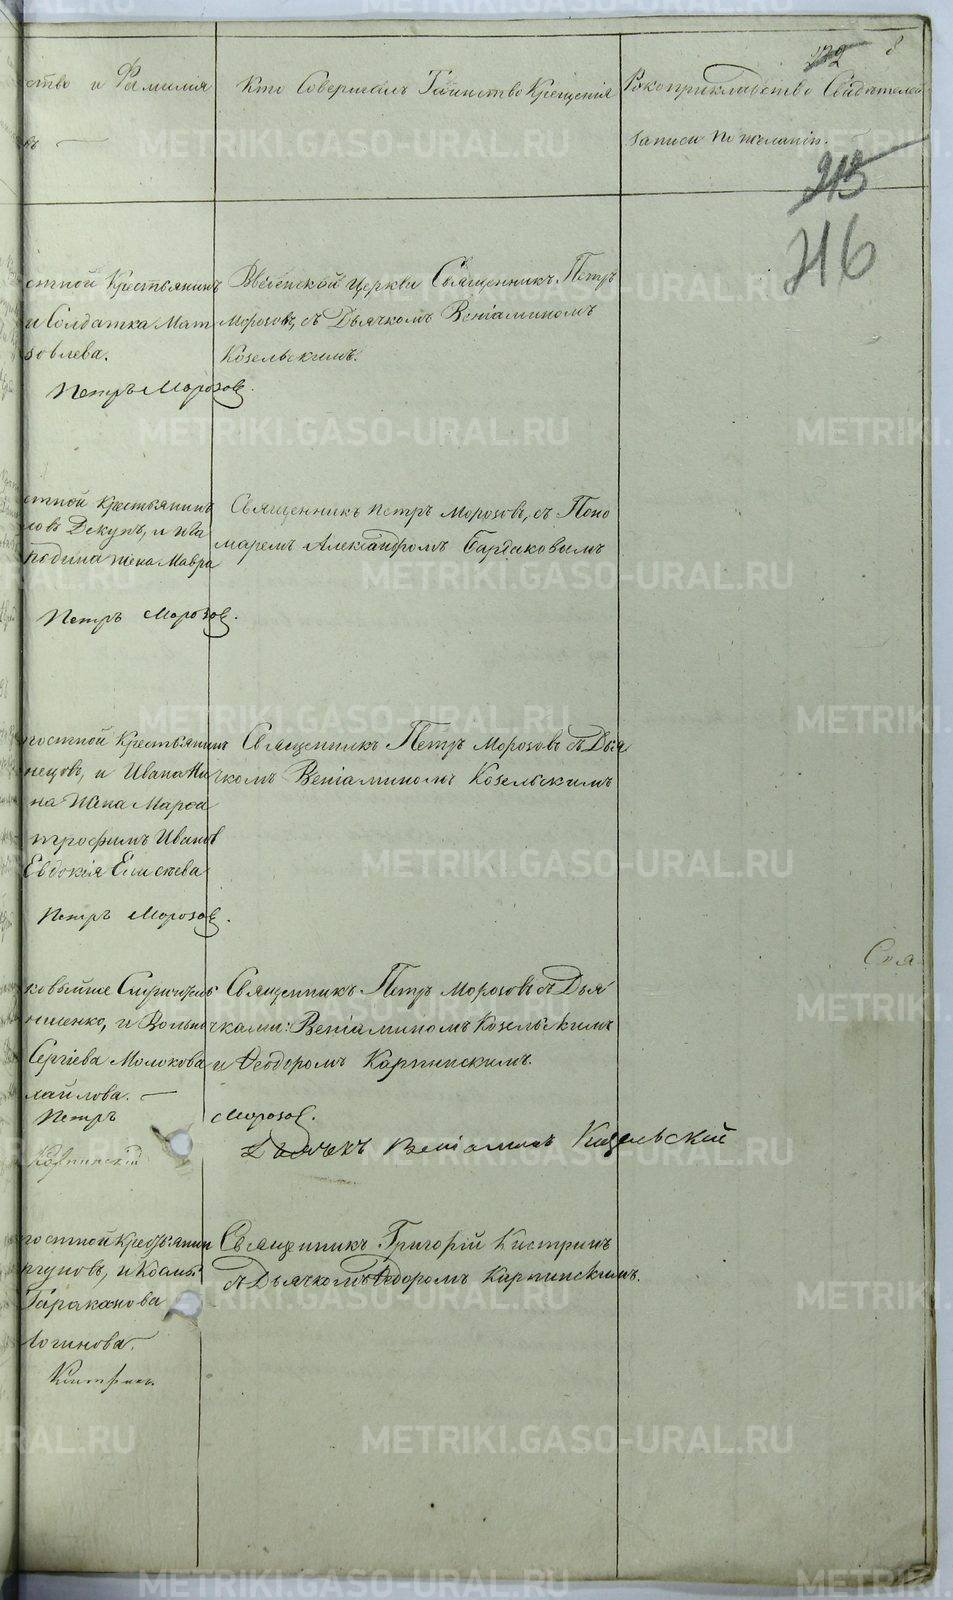 8
ство и Фамилия
Кто Совершалъ Таинство Крещенія
Рукоприкладство Свидѣтелей
записи по желанію.
215
216
стной Крестьянинъ
и Солдатка Мат
ковлева.
Петръ Морозовъ.
Введенской церкви Священникъ Петръ
Морозовъ, съ Дьячкомъ Веніаминомъ
Козельскимъ.
стной Крестьянинъ
родина жена Мавра
Петръ Морозовъ.
Священникъ Петръ Морозовъ, съ Поно
маремъ Александромъ
лостной Крестьянинъ
нецовъ, и Ивана Ни
на жена Марѳа
трофимъ Ивановъ
Евдокія Елисѣева
Петръ Морозовъ.
Священникъ Петръ Морозовъ съ Дья
чкомъ Веніаминомъ Козельскимъ
Сергіева Молокова
хайлова.
Петръ Морозовъ.
Карпинскій
Священникъ Петръ Морозовъ съ Дья
чками: Веніаминомъ Козельскимъ
и Ѳеодоромъ Карпинскимъ.
Дьячекъ Веніаминъ Козельскій
лостной Крестьянин
ргуновъ, и Козьмы
Тараканова
Логинова.
Священникъ Григорій Кистринъ
съ Дьячкомъ Ѳедоромъ Карпинскимъ.
METRIKI.GASO-URAL.RU